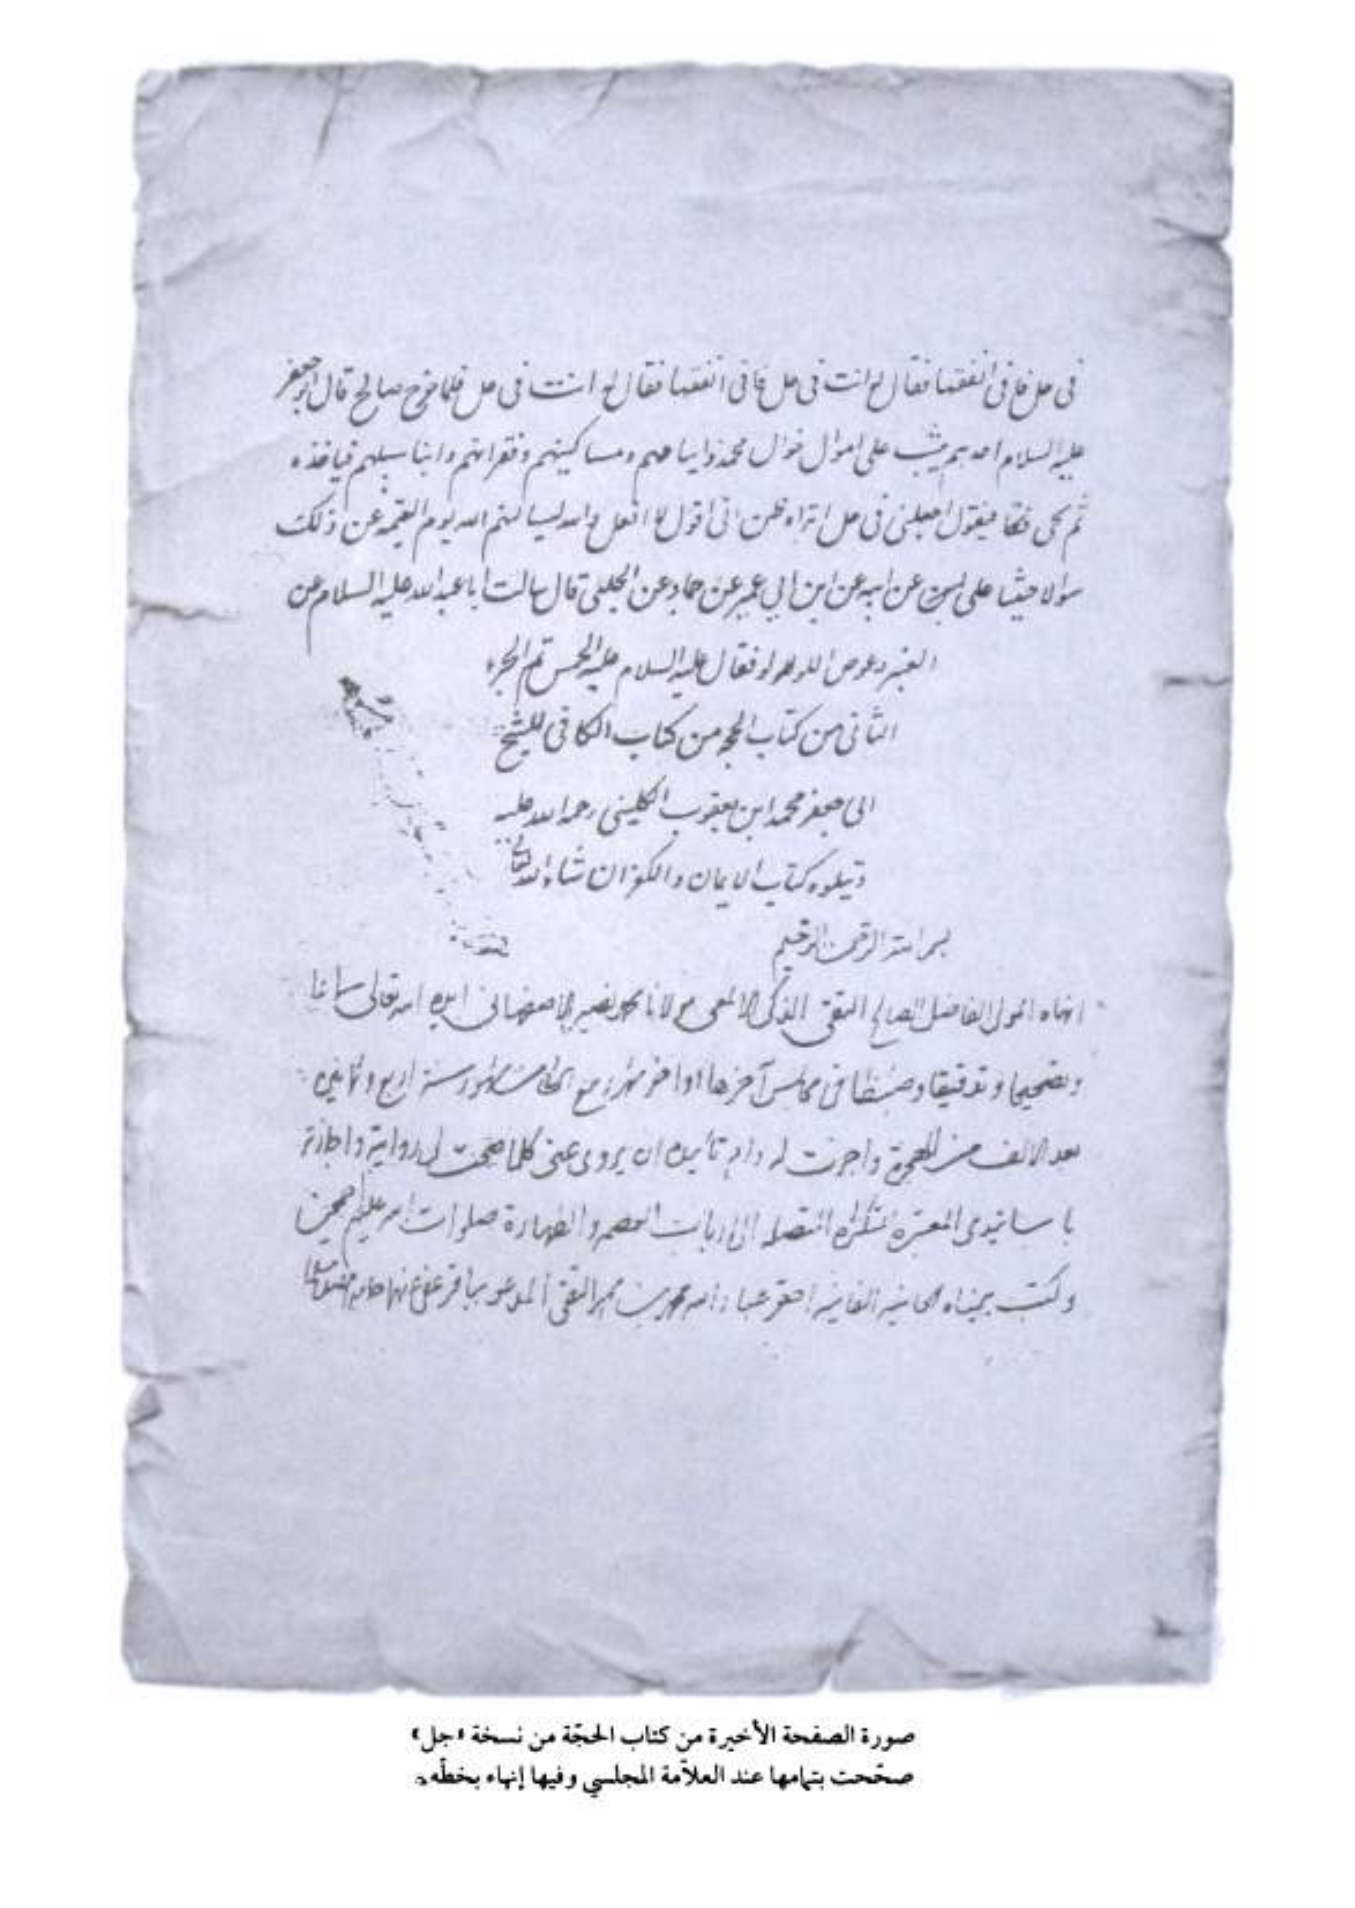 في حل فاني انفقتها فقال له انت في حل فاني انفقتها فقال له انت في حل فلما خرج صالح قال ابو جعفر
عليه السلام احدهم يثب على اموال محمد وايتامهم ومساكينهم وفقرائهم وابناء سبيلهم فياخذه
ثم يجئ فيقول اجعلني في حل اتراه ظن اني اقول لا افعل والله ليسالنهم الله يوم القيمة عن ذلك
سؤالا حثيثا علي بن عن ابيه عن ابن ابي عمير عن حماد عن الحلبي قال سالت ابا عبد الله عليه السلام عن
العنبر وغوص اللؤلؤ فقال عليه السلام عليه الخمس تم الجزء
الثاني من كتاب الحجة من كتاب الكافي للشيخ
ابي جعفر محمد ابن يعقوب الكليني رحمة الله عليه
ويتلوه كتاب الايمان والكفر ان شاء الله تعالى
بسم الله الرحمن الرحيم
انهاه المولى الفاضل الصالح التقي الذكي الالمعي مولانا محمد نصير الاصفهاني ايده الله تعالى سماعا
وتصحيحا وتدقيقا وضبطا في مجالس آخرها اواخر شهر ربيع سنة اربع وثمانين
بعد الالف من الهجرة واجزت له دام تأييده ان يروي عني كلما صحت لي روايته واجازته
باسانيدي المعتبرة المتصلة الى ارباب العصمة والطهارة صلوات الله عليهم اجمعين
وكتب بيمناه الجانية الفانية احقر عباد الله محمد بن محمد التقي المدعو بباقر عفي عنهما حامدا مصليا
صورة الصفحة الأخيرة من كتاب الحجّة من نسخة «جل»
صحّحت بتمامها عند العلّامة المجلسي وفيها إنهاء بخطّه